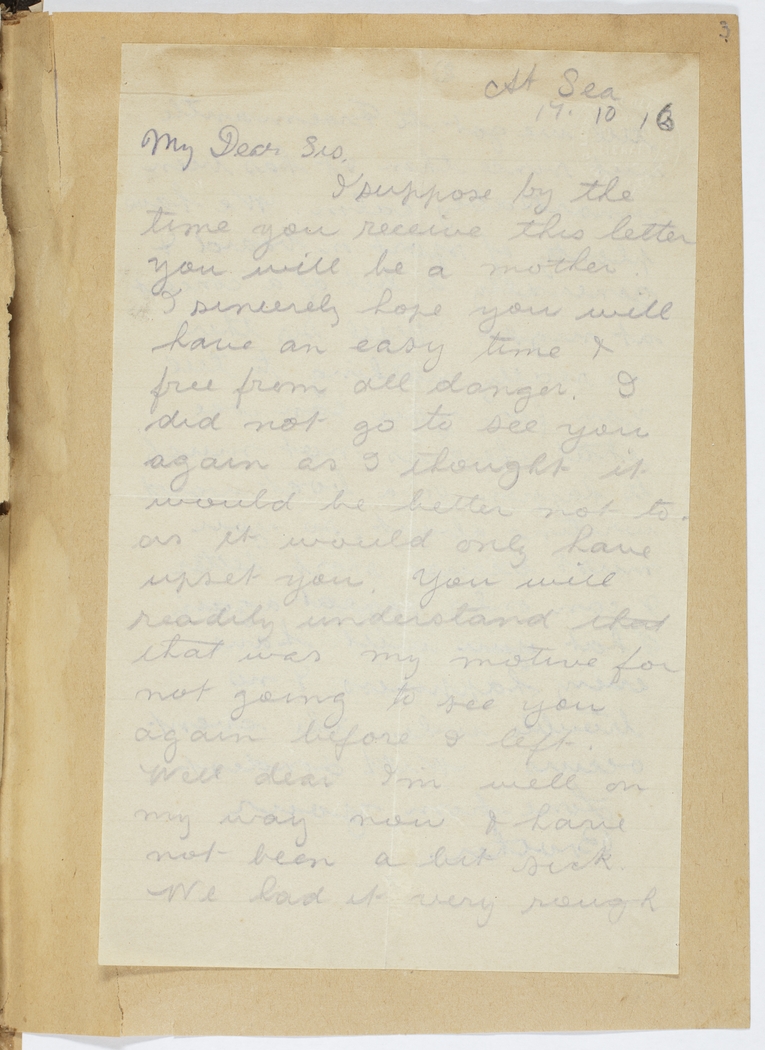 3
At Sea
19. 10 16
My Dear Sis.
I suppose by the
time you receive this letter
you will be a mother.
I sincerely hope you will
have an easy time &
free from all danger. I
did not go to see you
again as I thought it
would be better not to.
as it would only have
upset you. You will
readily understand that
that was my motive for
not going to see you
again before I left.
Well dear I'm well on
my way now & have
not been a bit sick.
We had it very rough